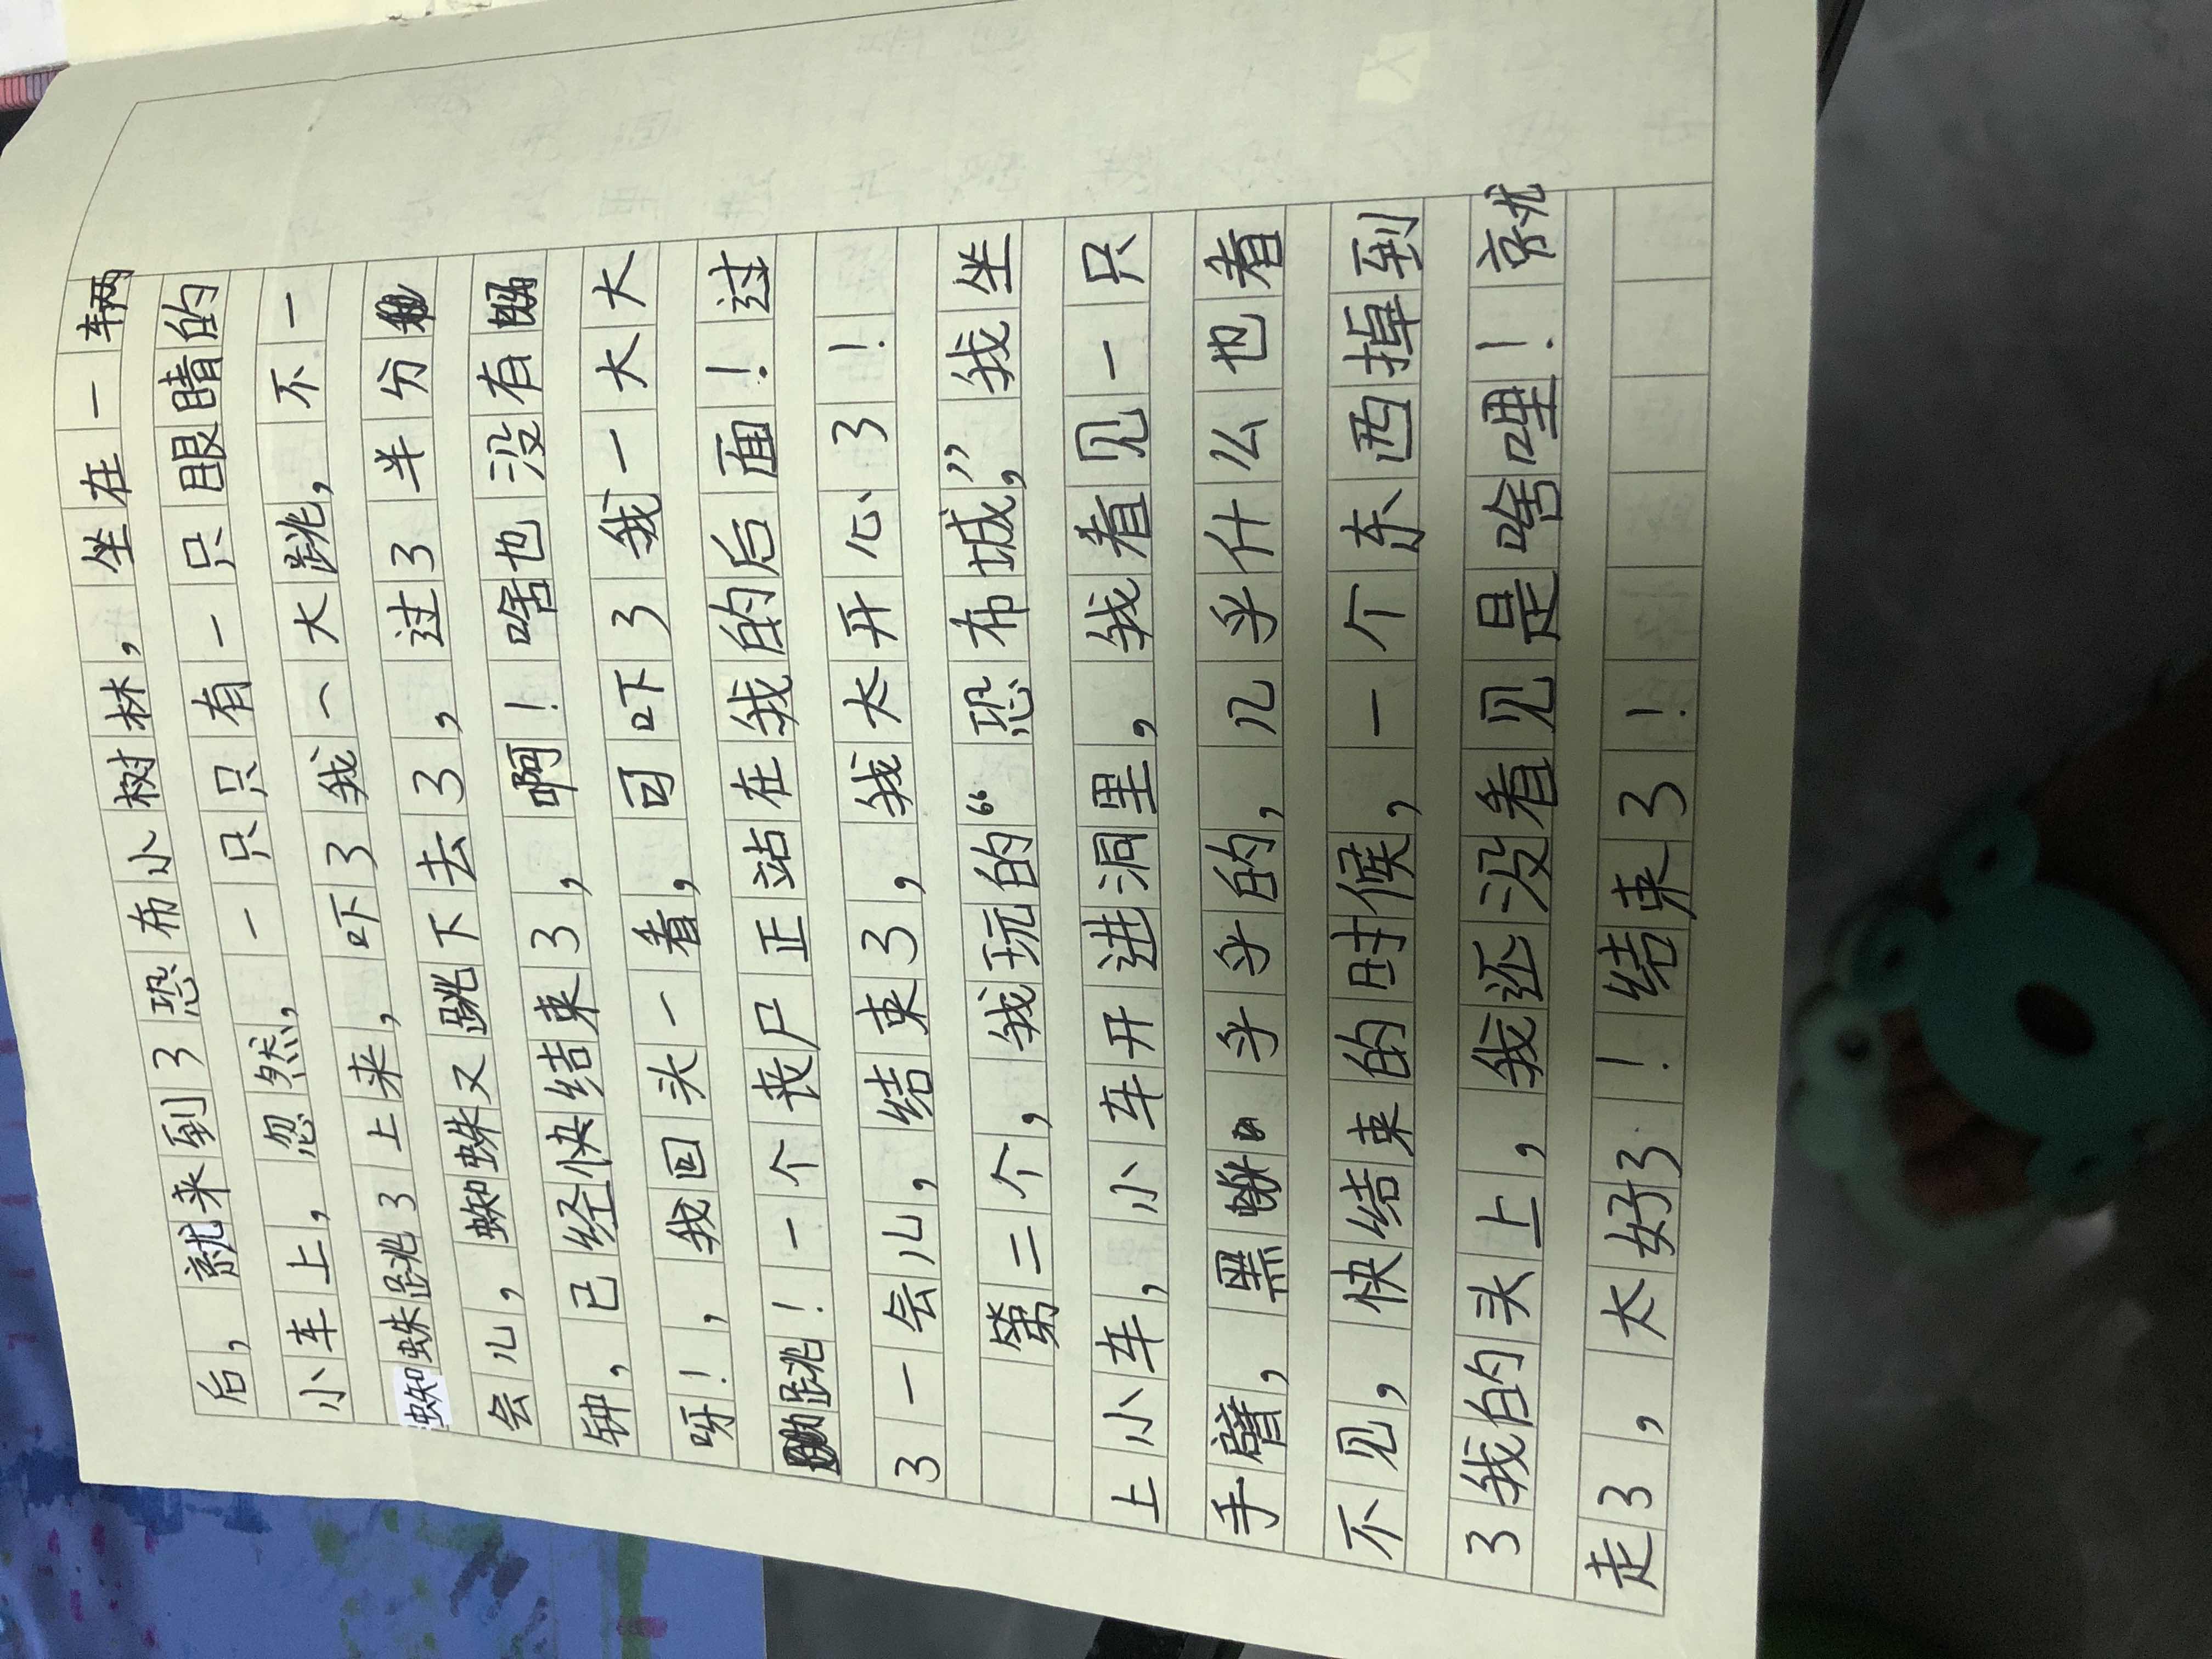 后，就来到了恐布小树林，坐在一辆
小车上，忽然，一只只有一只眼睛的
蜘蛛跳了上来，吓了我一大跳，不一
会儿，蜘蛛又跳下去了，过了半分
钟，已经快结束了，啊！啥也没有
呀！，我回头一看，可吓了我一大大
跳！一个丧尸正站在我的后面！过
了一会儿，结束了，我太开心了！
第二个，我玩的“恐布城，”我坐
上小车，小车开进洞里，我看见一只
手臂，黑乎乎的，几乎什么也看
不见，快结束的时候，一个东西掉到
了我的头上，我还没看见是啥哩！就
走了，太好了！结束了！